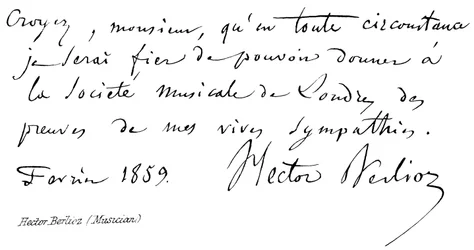 Croyez, monsieur, qu'en toute circonstance
je serai fier de pouvoir donner à
la Société musicale de Londres des
preuves de mes vives sympathies.
Fevrier 1859. Hector Berlioz
Hector Berlioz (Musician)